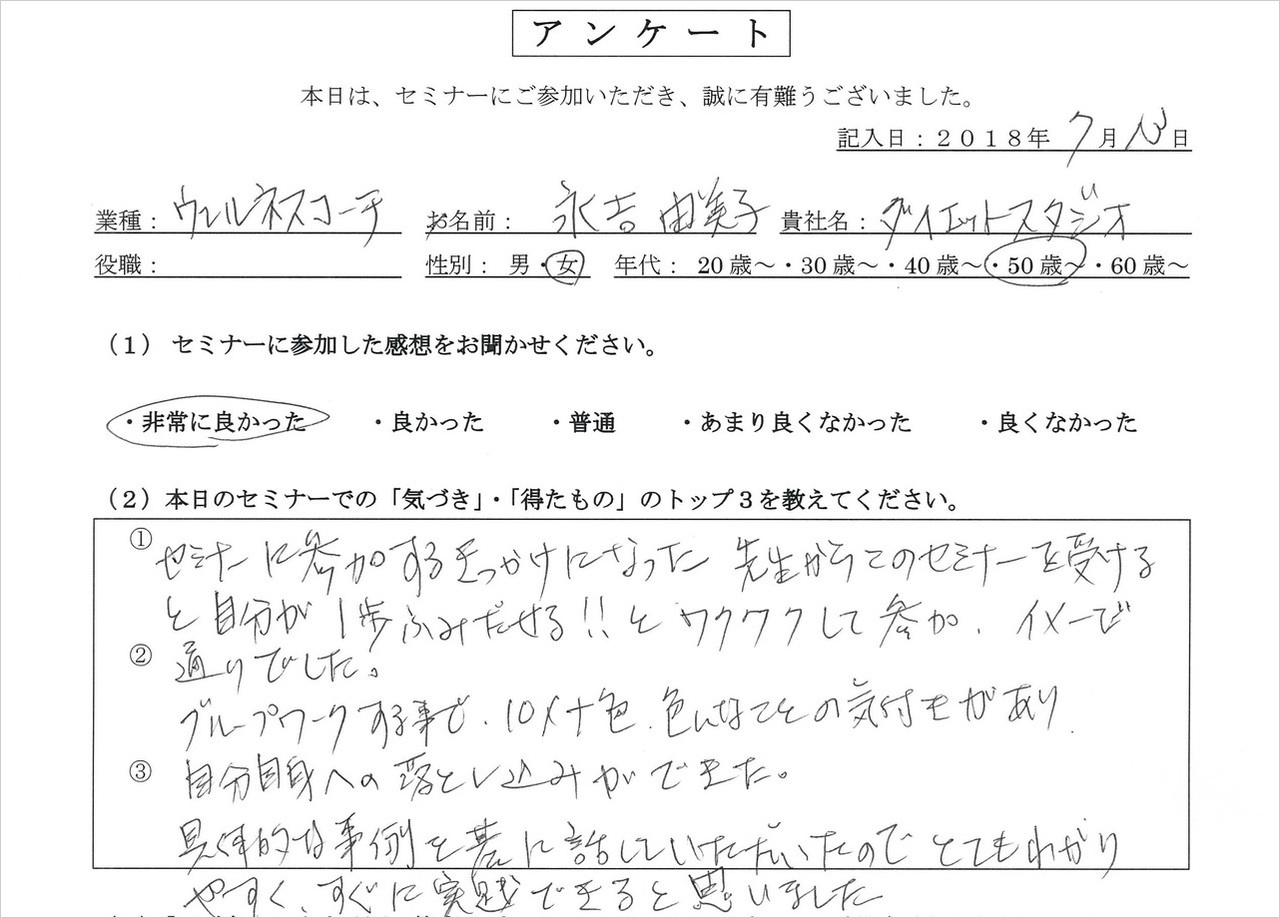 アンケート
本日は、セミナーにご参加いただき、誠に有難うございました。
記入日：２０１８年 7月13日
業種： ウェルネスコーチ お名前： 永吉 由美子 貴社名： ダイエットスタジオ
役職： 性別： 男・女 年代： 20歳～・30歳～・40歳～・50歳～・60歳～
（１） セミナーに参加した感想をお聞かせください。
・非常に良かった ・良かった ・普通 ・あまり良くなかった ・良くなかった
（２）本日のセミナーでの「気づき」・「得たもの」のトップ３を教えてください。
① セミナーに参加するきっかけになった 先生からこのセミナーを受ける
と自分が1歩ふみだせる!!とワクワクして参加. イメージ
② 通りでした。
グループワークする事で、10人十色、色んなことの気付きがあり
③ 自分自身への落とし込みができた。
具体的な事例を基に話していただいたのでとてもわかり
やすく、すぐに実践できると思いました